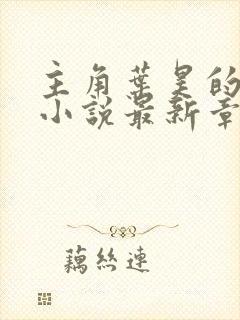 主角葉昊的
小說最新章
藕絲連